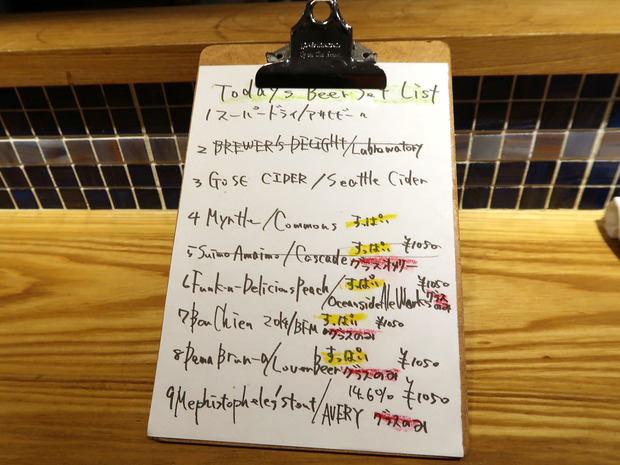 Today's Beer Set List
1 スーパードライ/アサヒビール
2 BREWER'S DELIGHT/Labrowatory
3 GOSE CIDER/Seattle Cider
4 Myrtle/Commons すっぱい
5 Suimo Amaimo/Cascade すっぱい ¥1050
グラスオンリー
6 Funk-n-Delicious Peach/ すっぱい ¥1050
Oceanside Ale Works グラスのみ
7 Bon Chien 2014/BFM すっぱい ¥1050
グラスのみ
8 Bema Brun-a/LoverBeer すっぱい ¥1050
グラスのみ
9 Mephistopheles' Stout/AVERY 14.6% ¥1050
グラスのみ